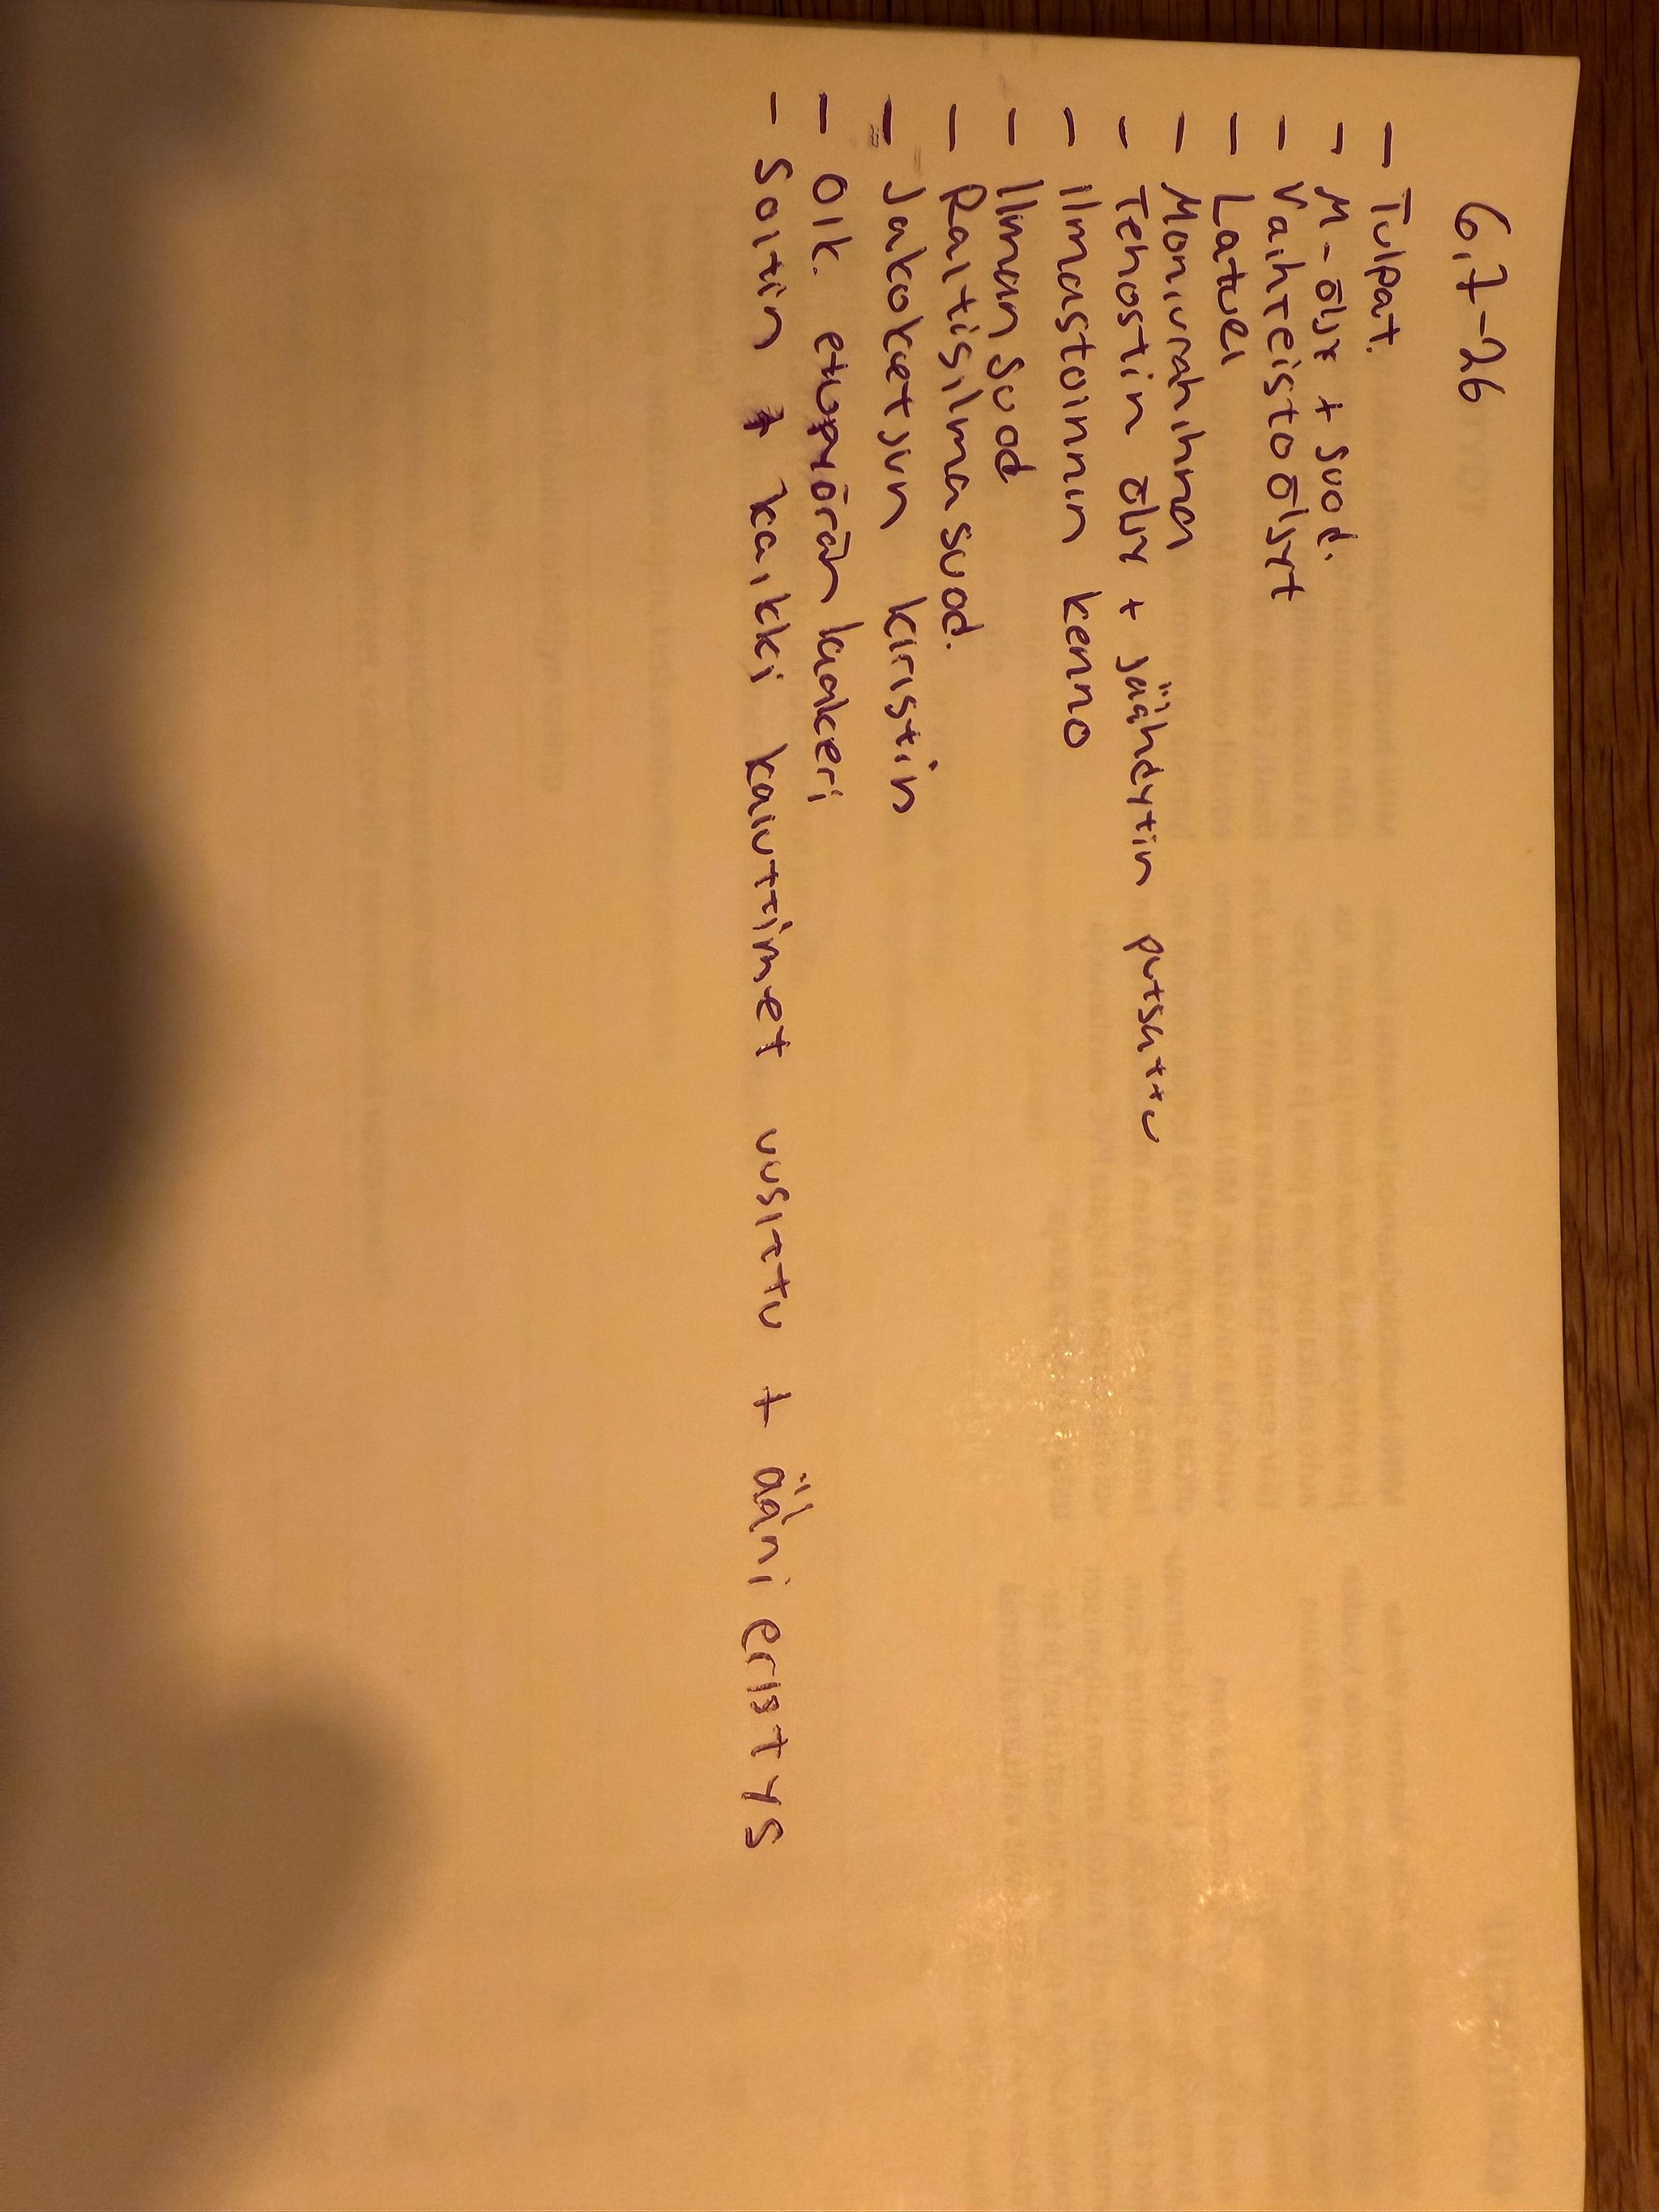 6,7-26
- Tulpat.
- M-öljy + suod.
- Vaihteistoöljyt
- Latuei
- Moniurahihna
- Tehostin öljy + jäähdytin putsattu
- Ilmastoinnin kenno
- Ilman suod
- Raitisilmasuod.
- Jakoketjun kiristin
- Oik. etupyörän laakeri
- Soitin + kaikki kaiuttimet uusittu + ääni eristys